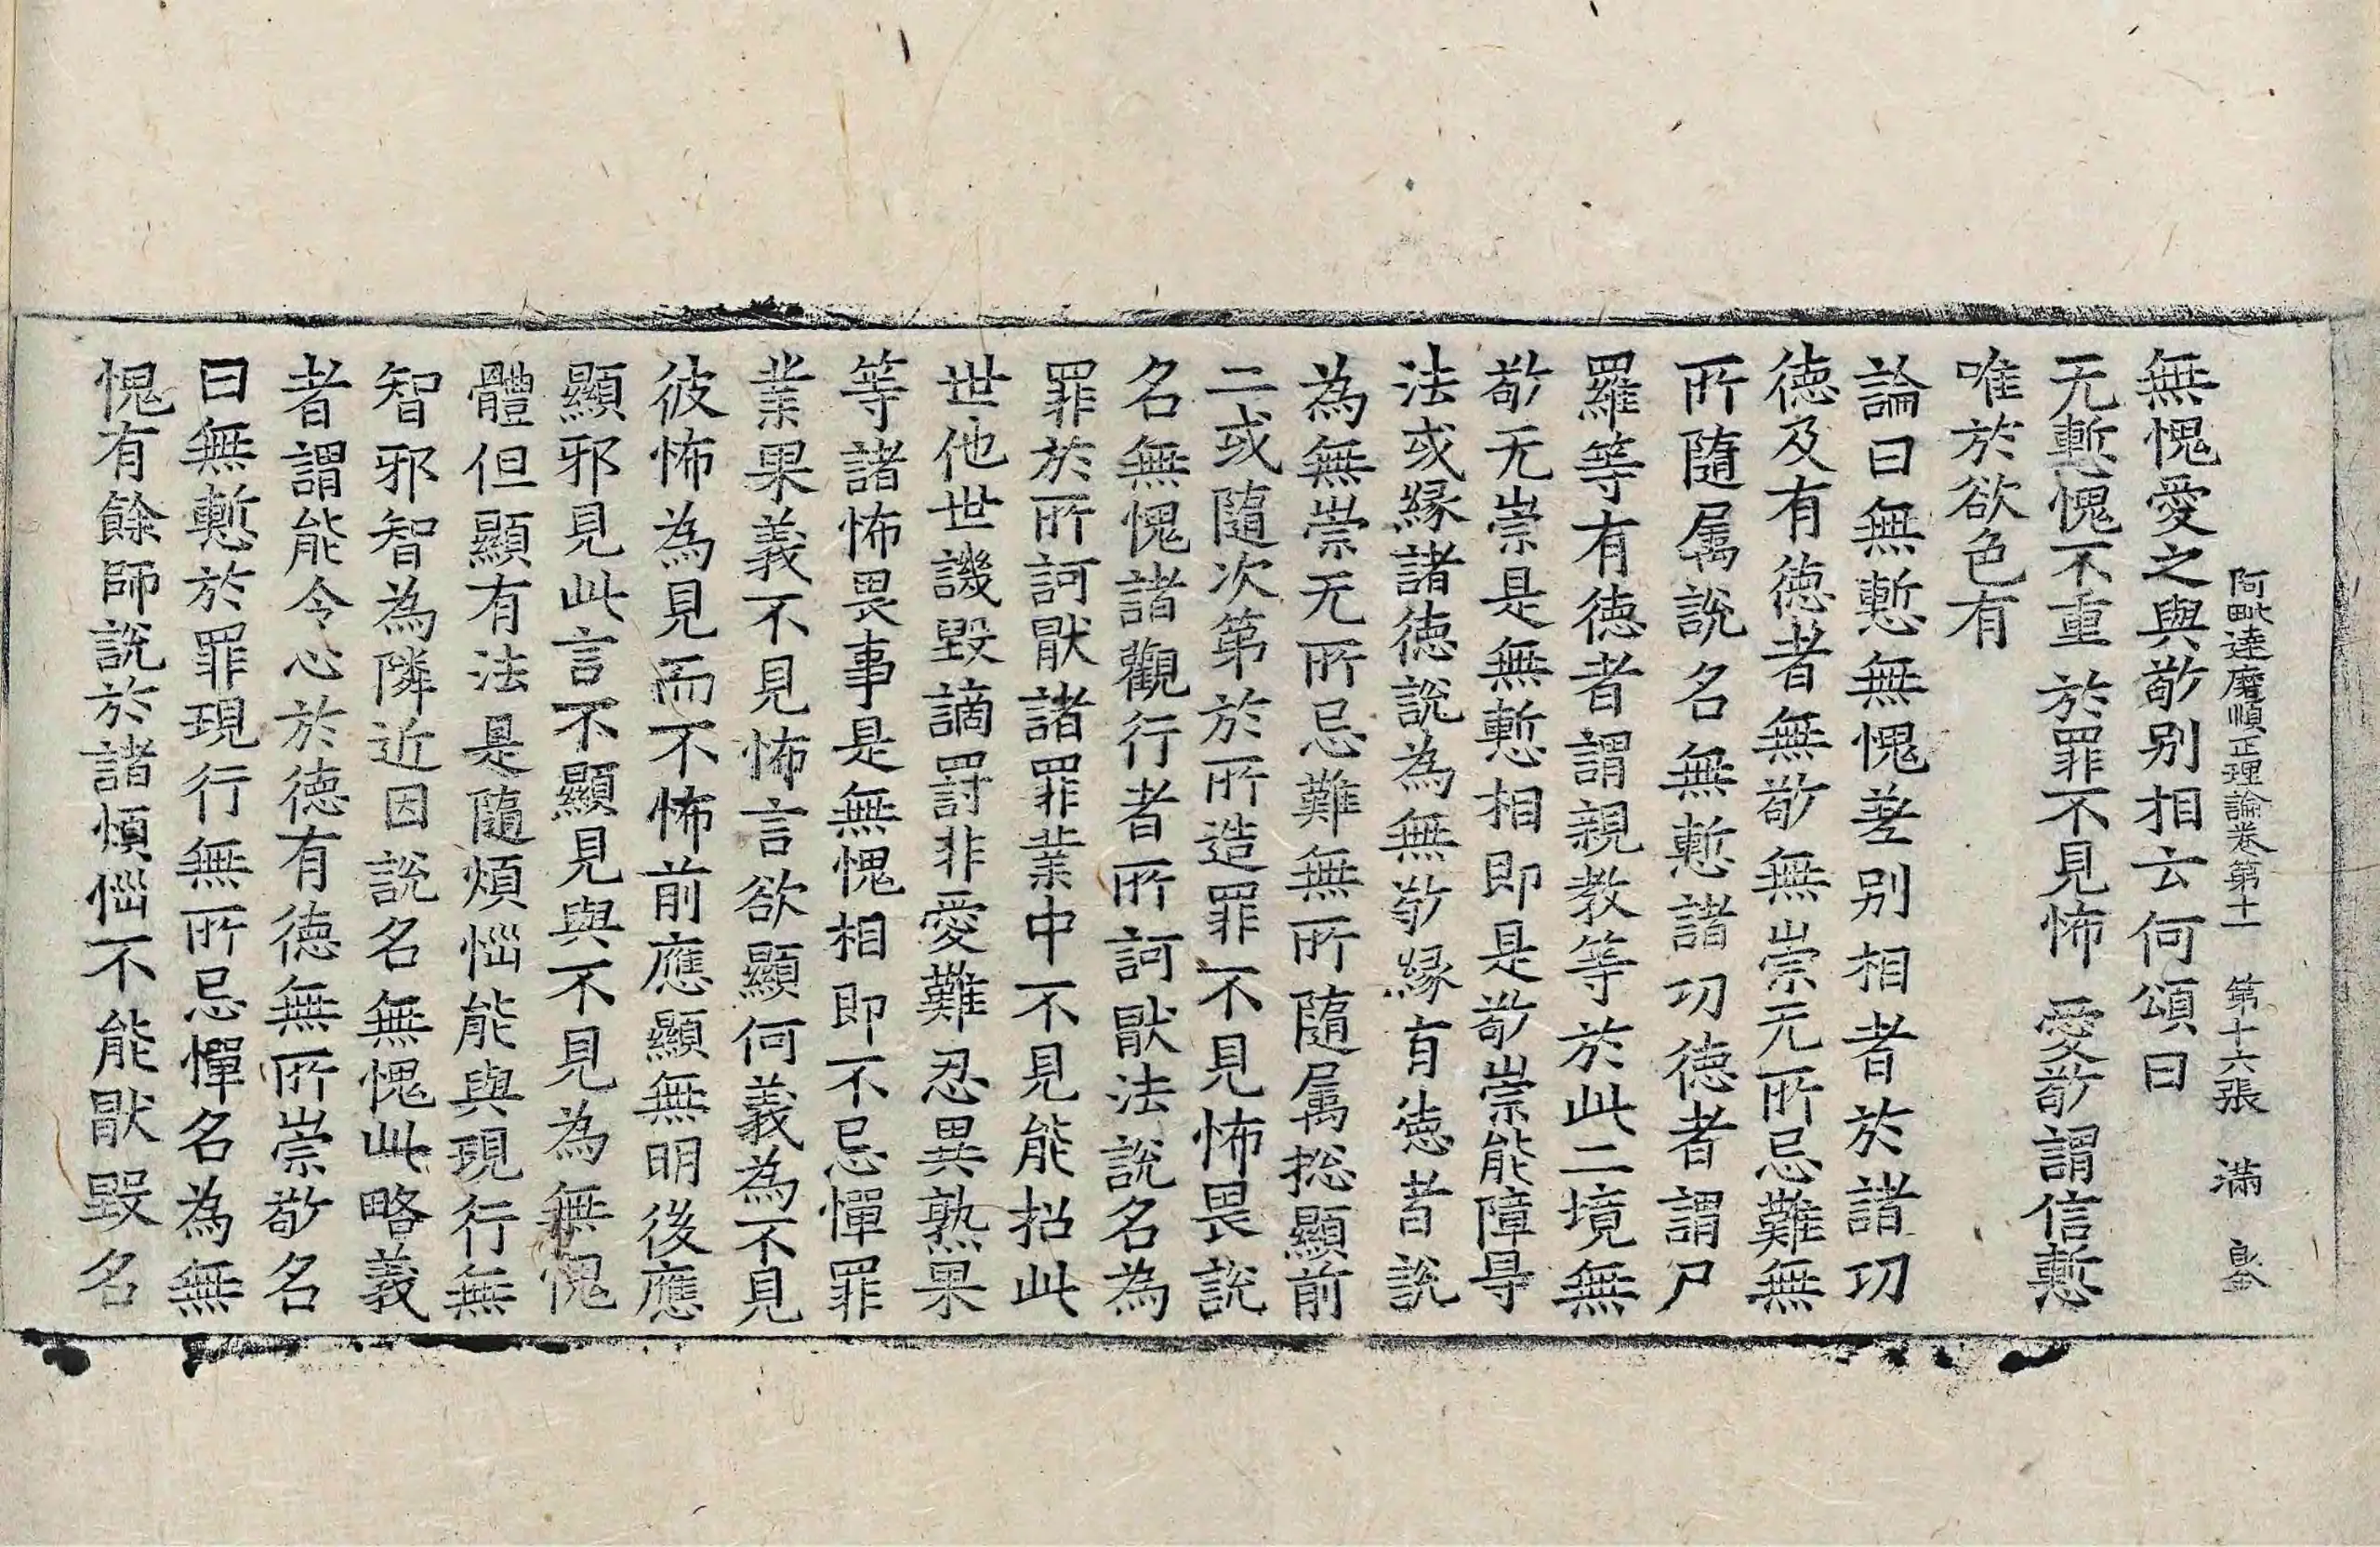 阿毗達磨順正理論卷第十一 第十六張 滿
無愧愛之與敬別相云何頌曰
无慙愧不重 於罪不見怖 愛敬謂信慙
唯於欲色有
論曰無慙無愧差別相者於諸功
德及有德者無敬無崇无所忌難無
所隨屬說名無慙諸功德者謂尸
羅等有德者謂親教等於此二境無
敬无崇是無慙相即是敬崇能障㝵
法或緣諸德說為無敬緣有德者說
為無崇无所忌難無所隨屬揔顯前
二或隨次第於所造罪不見怖畏說
名無愧諸觀行者所訶猒法說名為
罪於所訶猒諸罪業中不見能招此
世他世譏毀謫罰非愛難忍異熟果
等諸怖畏事是無愧相即不忌憚罪
業果義不見怖言欲顯何義為不見
彼怖為見而不怖前應顯無明後應
顯邪見此言不顯見與不見為無愧
體但顯有法是隨煩惱能與現行無
智邪智為隣近因說名無愧此略義
者謂能令心於德有德無所崇敬名
曰無慙於罪現行無所忌憚名為無
愧有餘師說於諸煩惱不能猒毀名